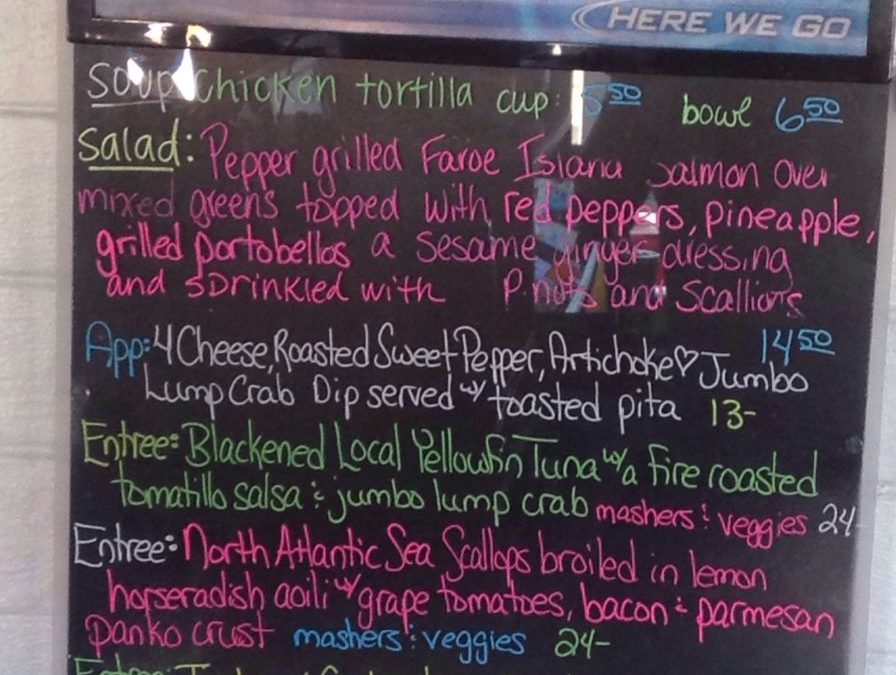 HERE WE GO
Soup Chicken tortilla cup: 5 50 bowl 6 50
Salad: Pepper grilled Faroe Island Salmon over
mixed greens topped with red peppers, pineapple,
grilled portobellos a sesame ginger dressing
and sprinkled with P.nuts and Scallions
14 50
App: 4 Cheese, Roasted Sweet Pepper, Artichoke ♡ Jumbo
Lump Crab Dip served w/ toasted pita 13-
Entree: Blackened Local Yellowfin Tuna w/a fire roasted
tomatillo salsa & jumbo lump crab mashers & veggies 24-
Entree: North Atlantic Sea Scallops broiled in lemon
horseradish aoili w/ grape tomatoes, bacon & parmesan
panko crust mashers & veggies 24-